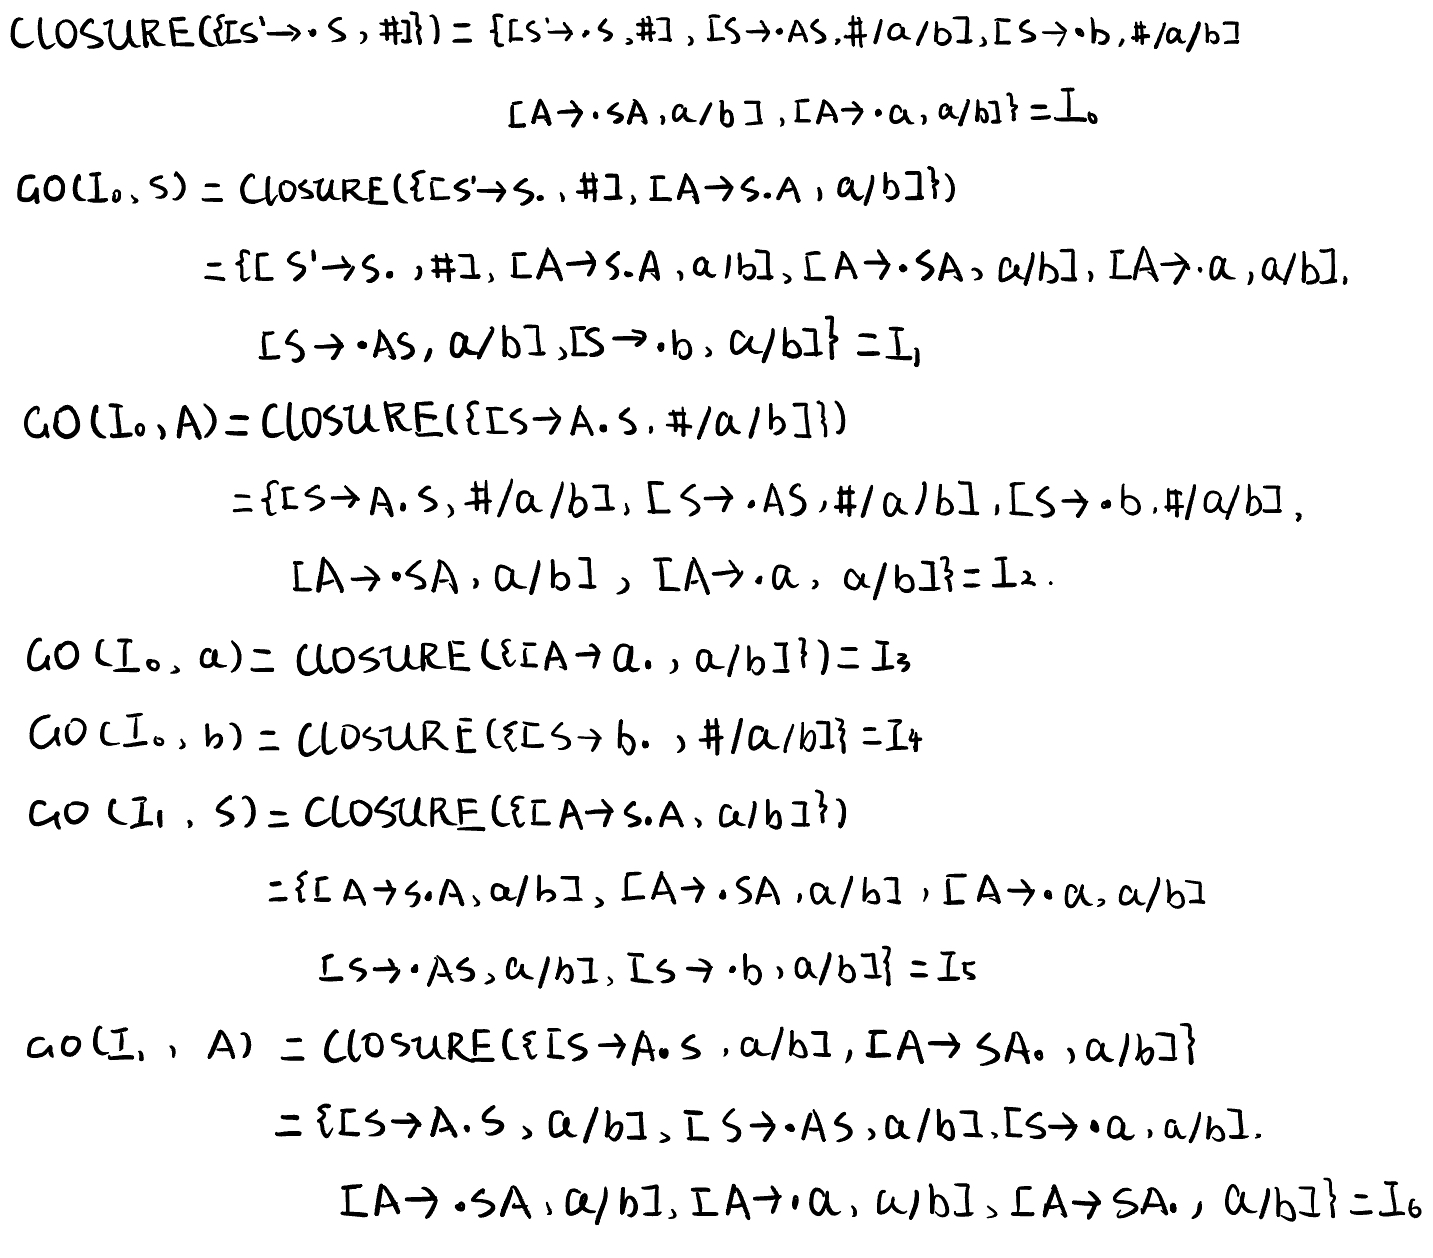 CLOSURE({[S'→·S,#]})={[S'→·S,#],[S→·AS,#/a/b],[S→·b,#/a/b]
[A→·SA,a/b],[A→·a,a/b]}=I₀
GO(I₀,S)=CLOSURE({[S'→S·,#],[A→S·A,a/b]})
={[S'→S·,#],[A→S·A,a/b],[A→·SA,a/b],[A→·a,a/b],
[S→·AS,a/b],[S→·b,a/b]}=I₁
GO(I₀,A)=CLOSURE({[S→A·S,#/a/b]})
={[S→A·S,#/a/b],[S→·AS,#/a/b],[S→·b,#/a/b],
[A→·SA,a/b],[A→·a,a/b]}=I₂.
GO(I₀,a)=CLOSURE({[A→a·,a/b]})=I₃
GO(I₀,b)=CLOSURE({[S→b·,#/a/b]}=I₄
GO(I₁,S)=CLOSURE({[A→S·A,a/b]})
={[A→S·A,a/b],[A→·SA,a/b],[A→·a,a/b]
[S→·AS,a/b],[S→·b,a/b]}=I₅
GO(I₁,A)=CLOSURE({[S→A·S,a/b],[A→SA·,a/b]}
={[S→A·S,a/b],[S→·AS,a/b],[S→·a,a/b].
[A→·SA,a/b],[A→·a,a/b],[A→SA·,a/b]}=I₆